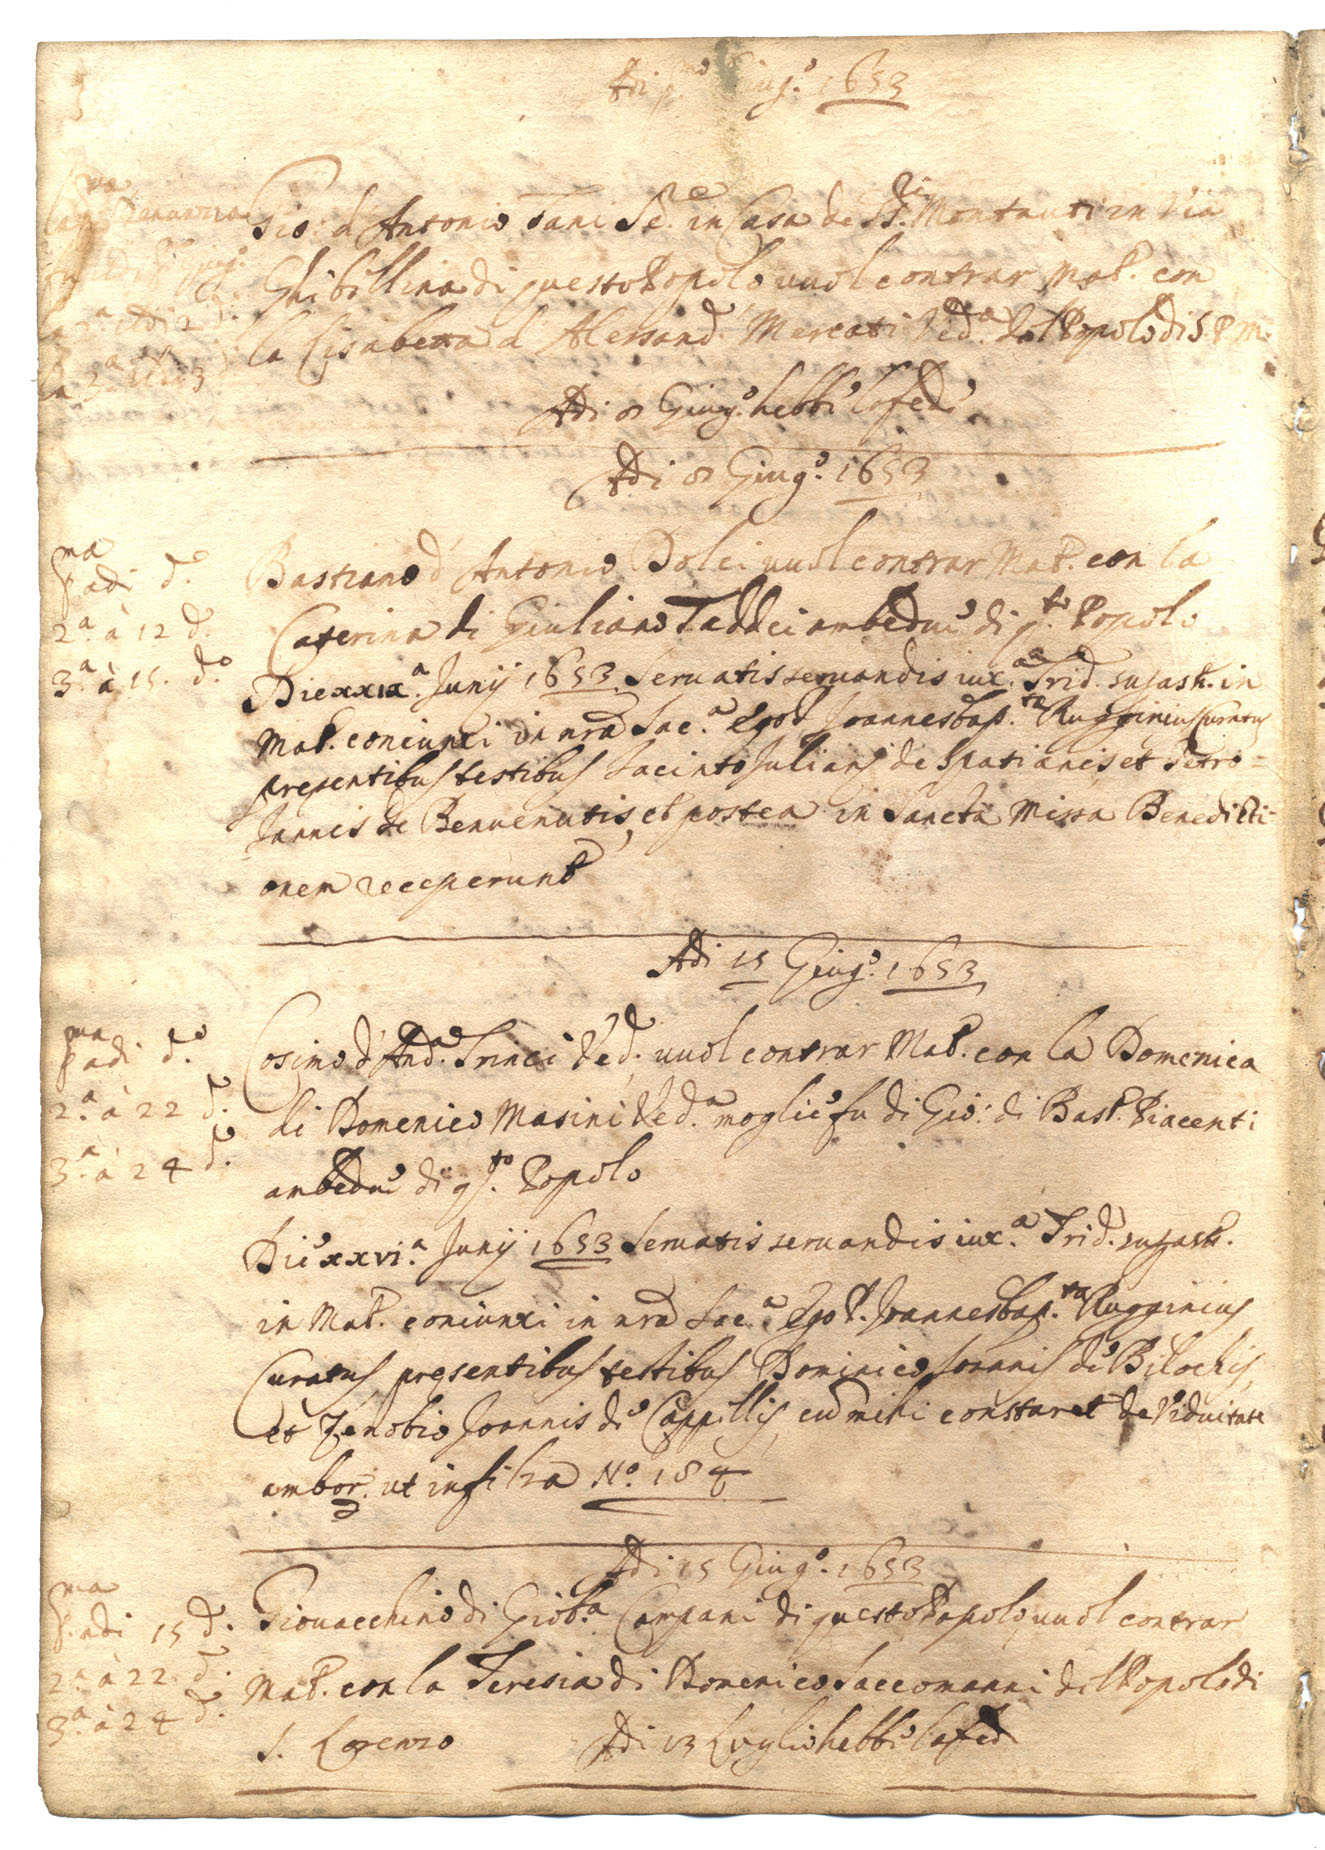 Adi p.mo Giug.o 1653
la p.a Denunzia
Gio: d'Antonio Tani Se.e in Casa de SS.ri Montauti in Via
Ghibellina di questo Popolo vuol contrar Mat. con
la 2.a adi 2 d.
la Lisabetta d'Alessand.o Mercati Ved.a del Popolo di S. P. M.
la 3.a adi 3
Adi 8 Giug.o hebbe la fede
Adi 8 Giug.o 1653
p.ma adi d.o
Bastiano d'Antonio Dolci vuol contrar Mat. con la
2.a à 12 d.o
Caterina di Giuliano Taddei ambedue di q.to Popolo
3.a à 15. d.o
Die xxix.a Junij 1653 Servatis servandis iux.a Trid. in
Mat. coniunxi in nra Sac.a Ego P. Joannesbap.ta Rugginius Curatus
presentibus testibus Jacinto Juliani de Spatianis et Petro
Jannis de Benvenutis, et postea in Sancta Missa Benedicti-
onem receperunt
Adi 15 Giug.o 1653
p.ma adi d.o
Cosimo d'And.a Trinci Ved.o vuol contrar Mat. con la Domenica
2.a à 22 d.o
di Domenico Masini Ved.a moglie fu di Gio: di Bast. Piacenti
3.a à 24 d.o
ambedue di q.to Popolo
Die xxvi.a Junij 1653 Servatis servandis iux.a Trid.
in Mat. coniunxi in nra Sac.a Ego P. Joannesbap.ta Rugginius
Curatus presentibus testibus Dominico Joannis de Bilochis,
et Zenobio Joannis de Cappellis, cu mihi constaret de Viduitate
ambor. ut in filza N.o 184
Adi 15 Giug.o 1653
p.ma adi 15 d.o
Giovacchino di Giob.a Campani di questo Popolo vuol contrar
2.a à 22 d.o
Mat. con la Teresia di Domenico Saccomanni del Popolo di
3.a à 24 d.o
S. Lorenzo Adi 13 Luglio hebbe la fede